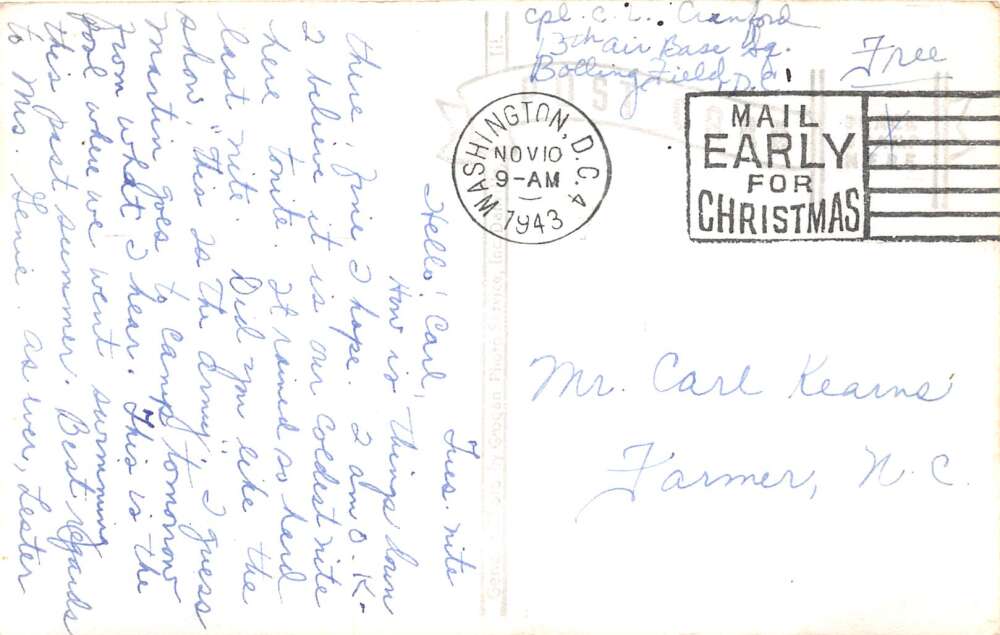 cpl. C. L. Cranford
13th Air Base Sq.
Bolling Field, D.C.
Free
WASHINGTON, D.C. 4
NOV 10
9-AM
1943
MAIL
EARLY
FOR
CHRISTMAS
Tues. nite
Hello! Carl!
How is things down
there, fine I hope. I am O.K.
I believe it is our coldest nite
here tonite. It rained so hard
last nite. Did you like the
show, "This Is The Army". I guess
Martin goes to camp tomorrow
from what I hear. This is the
pool where we went swimming
this past summer. Best regards
to Mrs. Genie. As ever, Lester
Mr. Carl Kearns
Farmer, N.C.